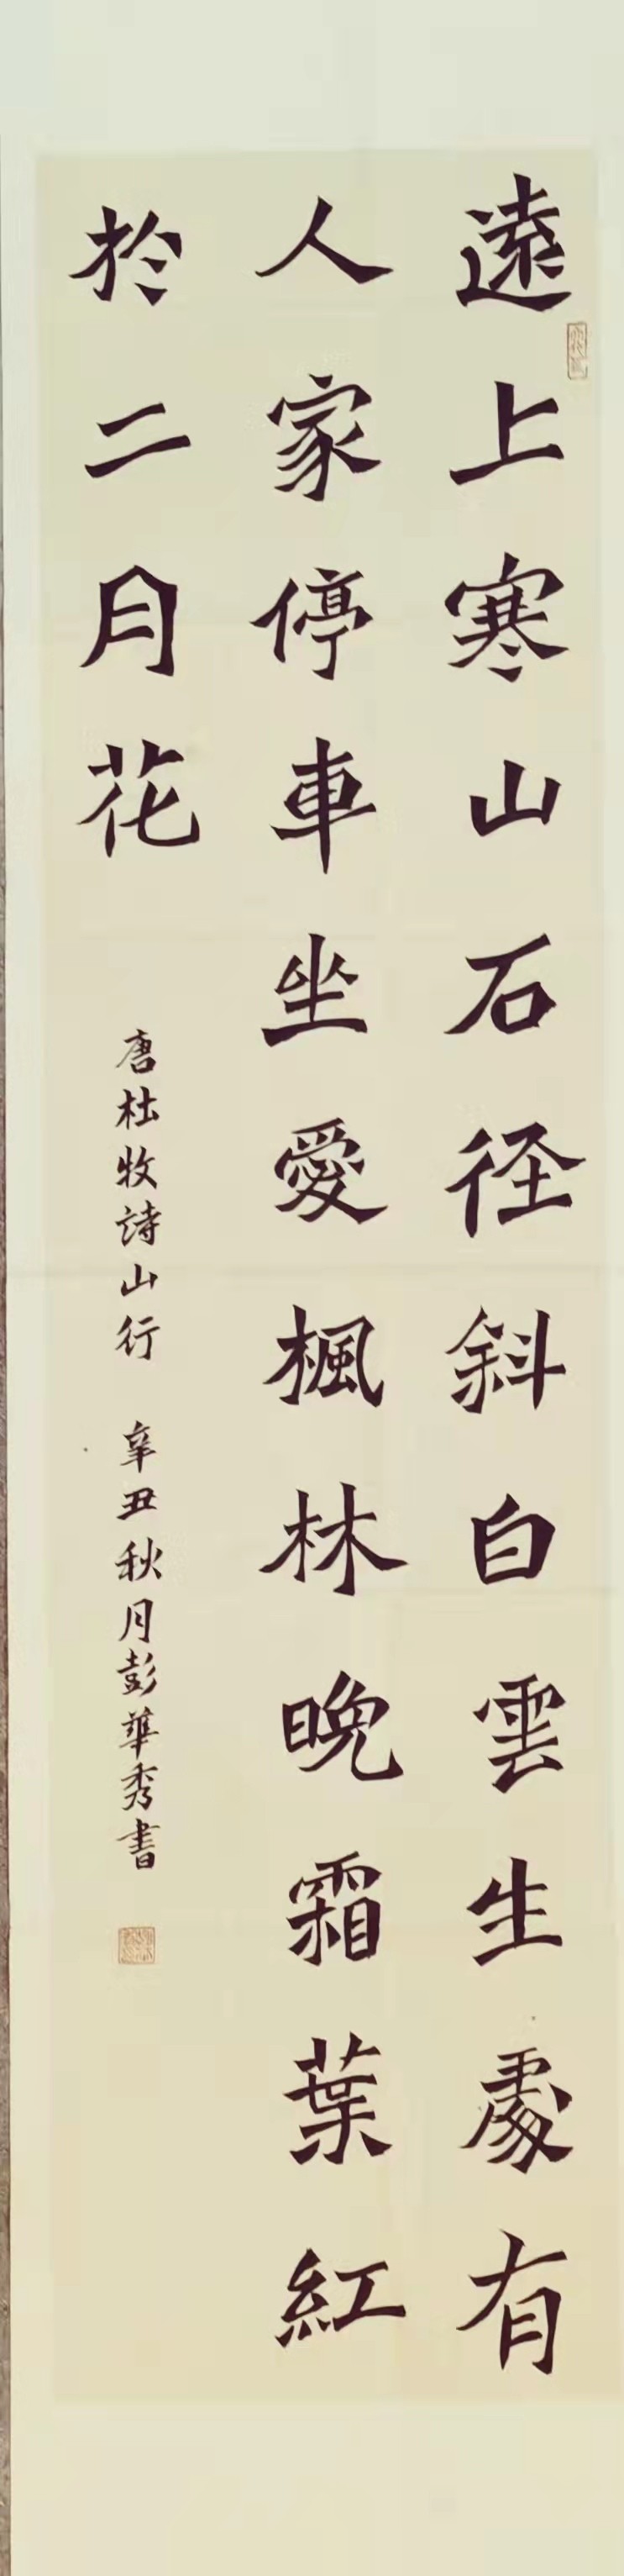 遠上寒山石径斜白雲生處有
人家停車坐愛楓林晚霜葉紅
於二月花
唐杜牧詩山行 辛丑秋月彭華秀書